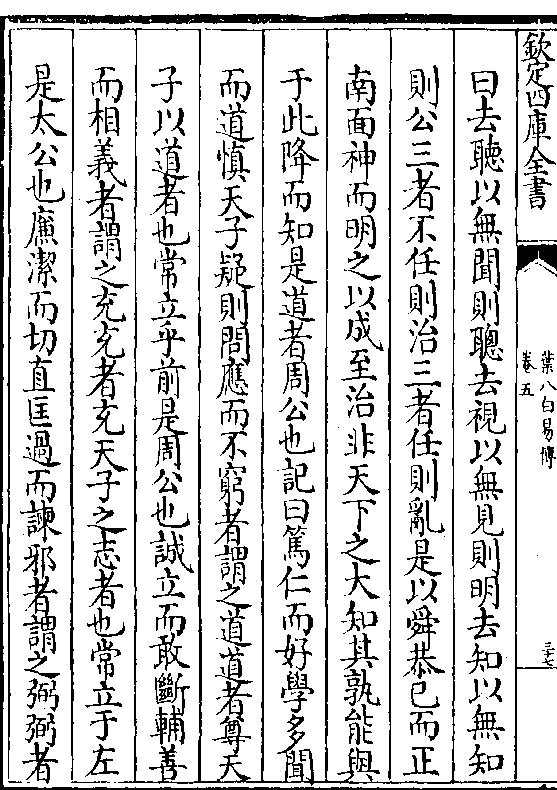 欽定四庫全書
葉八白易傳
卷五
三十七
曰去聽以無聞則聰去視以無見則明去知以無知
則公三者不任則治三者任則亂是以舜恭己而正
南面神而明之以成至治非天下之大知其孰能與
于此降而知是道者周公也記曰篤仁而好學多聞
而道慎天子疑則問應而不窮者謂之道道者導天
子以道者也常立乎前是周公也誠立而敢斷輔善
而相義者謂之充充者充天子之志者也常立于左
是太公也廉潔而切直匡過而諫邪者謂之弼弼者